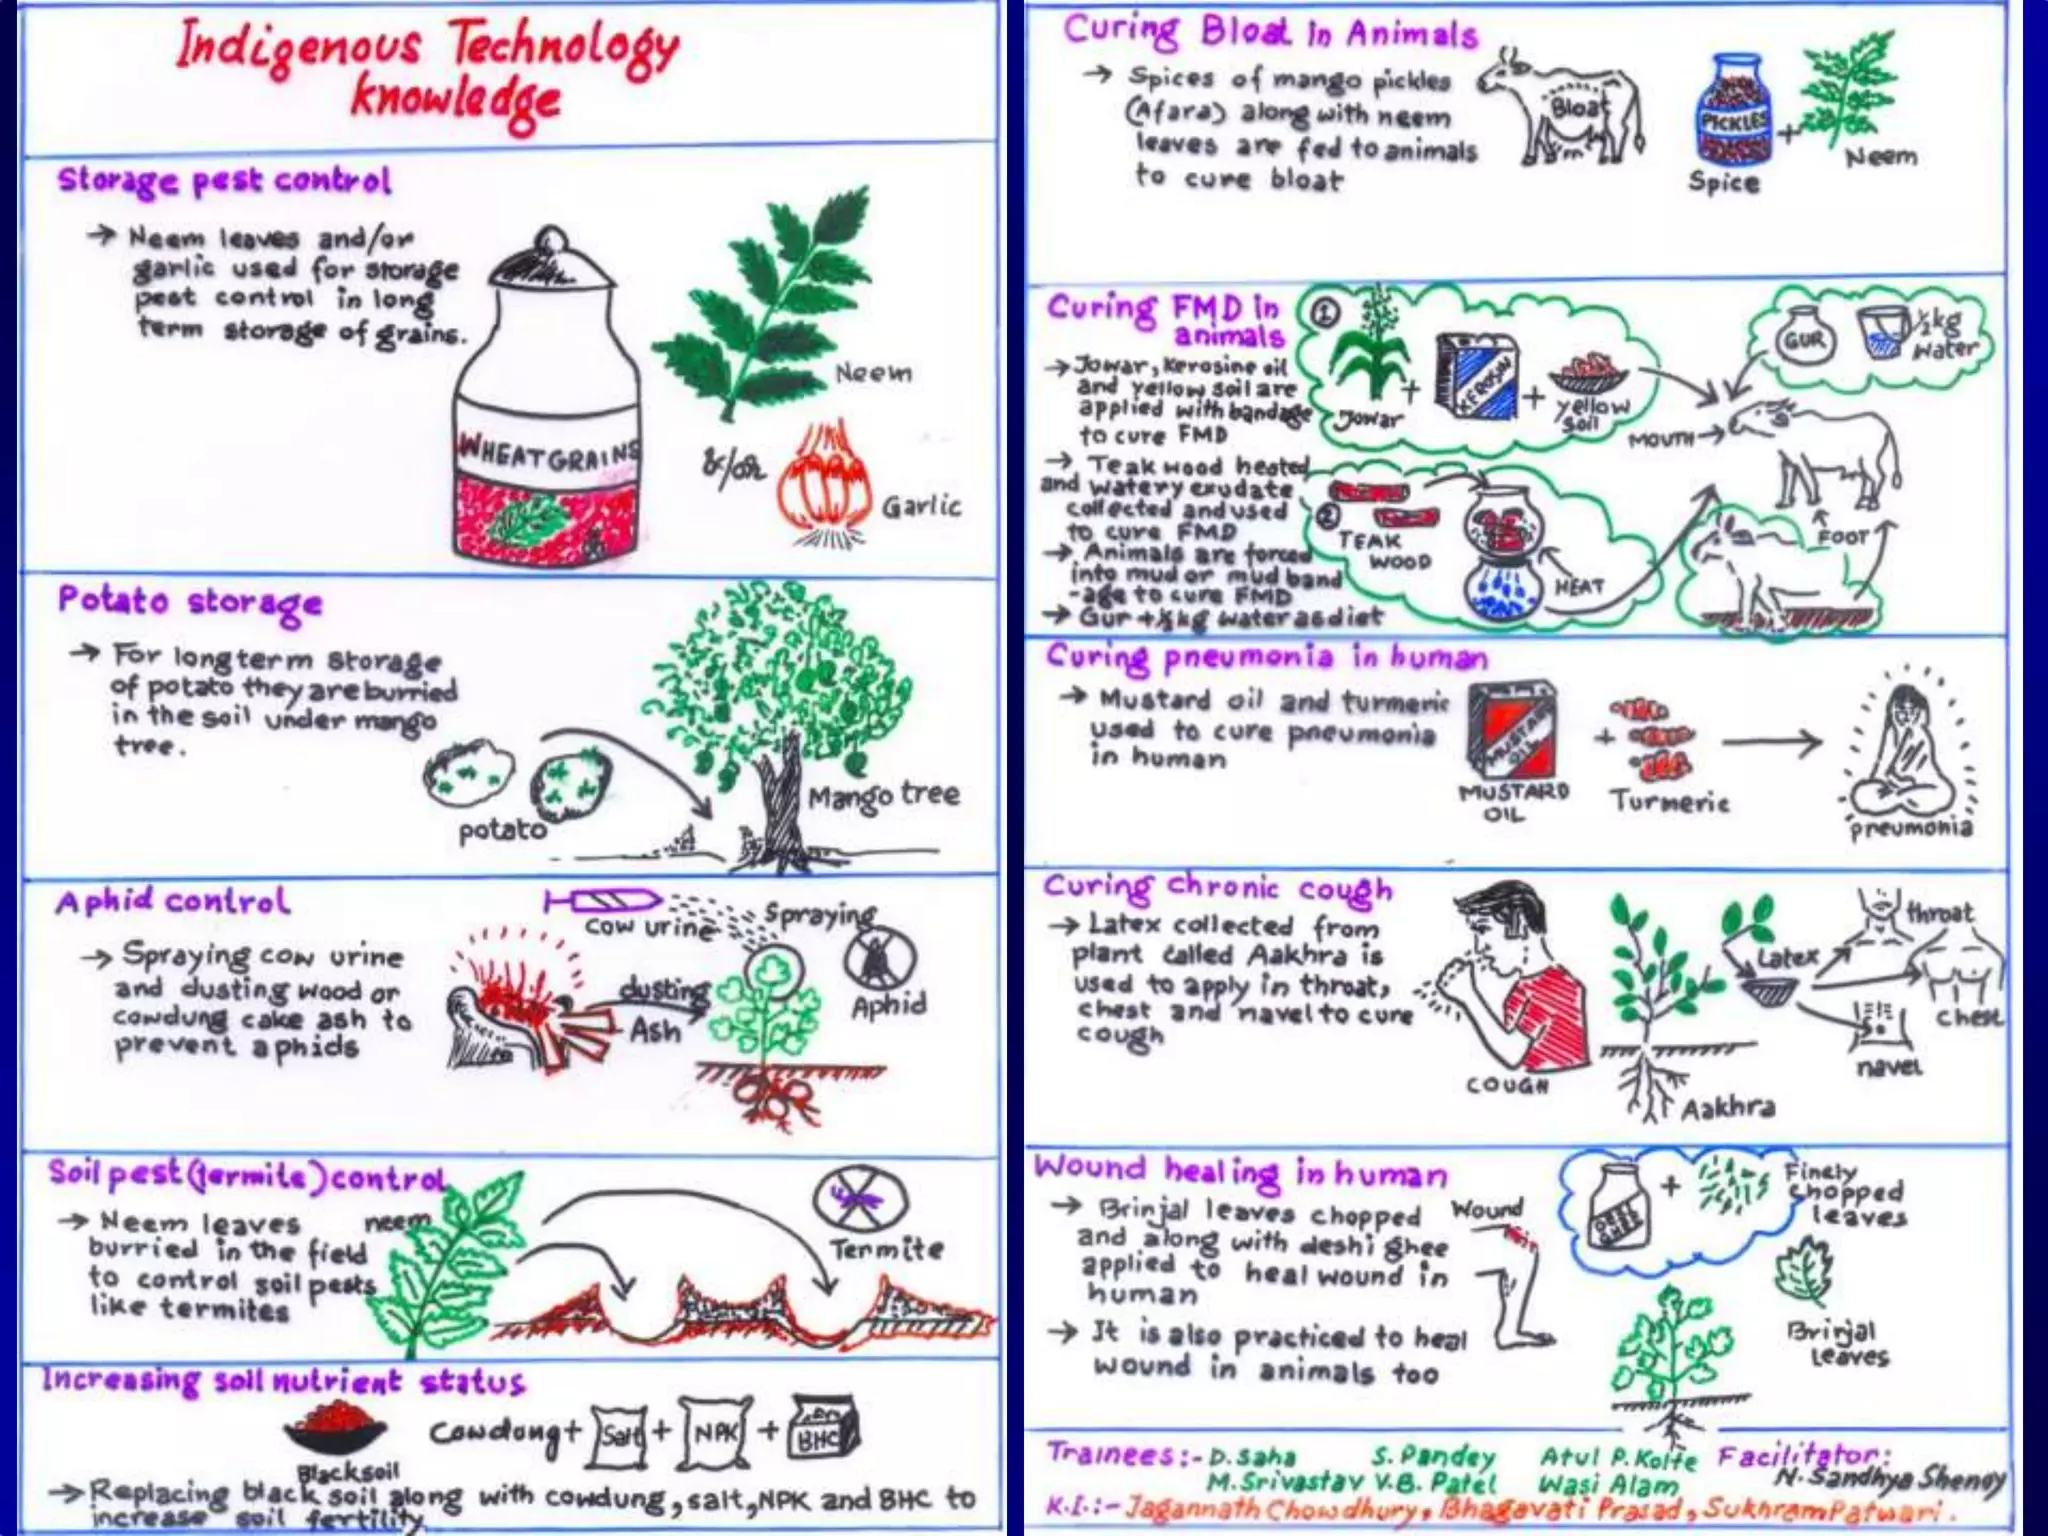 Indigenous Technology
knowledge
Storage pest control
→ Neem leaves and/or
garlic used for storage
pest control in long
term storage of grains.
WHEATGRAINS
Neem
&/or
Garlic
Potato storage
→ For longterm storage
of potato they are burried
in the soil under mango
tree.
potato
Mango tree
Aphid control
→ Spraying cow urine
and dusting wood or
cowdung cake ash to
prevent aphids
cow urine
Spraying
dusting
Ash
Aphid
Soil pest (termite) control
→ Neem leaves
burried in the field
to control soil pests
like termites
neem
Termite
Increasing soil nutrient status
Black soil
Cowdung + Salt + NPK + BHC
→ Replacing black soil along with cowdung, salt, NPK and BHC to
increase soil fertility
Curing Bloat in Animals
→ Spices of mango pickles
(Afara) along with neem
leaves are fed to animals
to cure bloat
Bloat
PICKLES
+
Spice
Neem
Curing FMD in
animals
→ Jowar, Kerosine oil
and yellow soil are
applied with bandage
to cure FMD
→ Teak wood heated
and watery exudate
collected and used
to cure FMD
→ Animals are forced
into mud or mud band
-age to cure FMD
→ Gur + ½ kg water as diet
1
Jowar
+
KEROSIN
+
yellow
soil
GUR
½ kg
water
MOUTH →
2
TEAK
WOOD
HEAT
FOOT
Curing pneumonia in human
→ Mustard oil and turmeric
used to cure pneumonia
in human
MUSTARD OIL
MUSTARD
OIL
+
Turmeric
pneumonia
Curing chronic cough
→ Latex collected from
plant called Aakhra is
used to apply in throat,
chest and navel to cure
cough
COUGH
Aakhra
Latex
throat
chest
navel
Wound healing in human
→ Brinjal leaves chopped
and along with deshi ghee
applied to heal wound in
human
→ It is also practiced to heal
wound in animals too
Wound
GHEE
+
Finely
chopped
leaves
Brinjal
leaves
Trainees:- D. Saha S. Pandey Atul P. Kolte Facilitator:
M. Srivastav V.B. Patel Wasi Alam N. Sandhya Shenoy
K.I.:- Jagannath Chowdhury, Bhagavati Prasad, Sukhram Patwari.